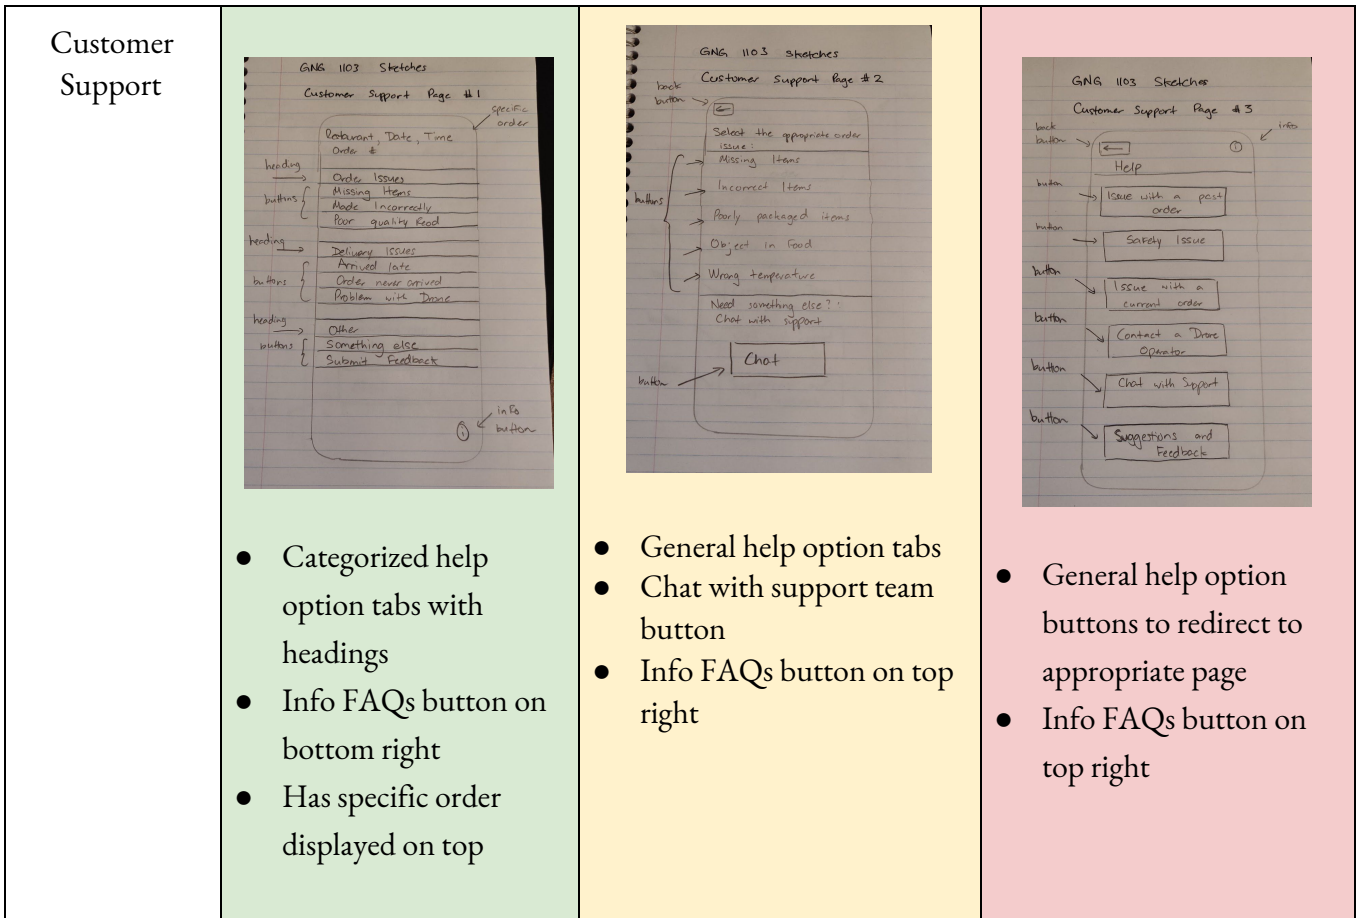 Customer
Support
GNG 1103 Sketches
Customer Support Page #1
specific
order
Restaurant, Date, Time
Order #
heading
Order Issues
buttons
Missing Items
Made Incorrectly
Poor quality food
heading
Delivery Issues
buttons
Arrived late
Order never arrived
Problem with Drone
heading
Other
buttons
Something else
Submit Feedback
info
button
i
● Categorized help
option tabs with
headings
● Info FAQs button on
bottom right
● Has specific order
displayed on top
GNG 1103 Sketches
Customer Support Page #2
back
button
←
Select the appropriate order
issue:
buttons
Missing Items
Incorrect Items
Poorly packaged items
Object in Food
Wrong temperature
Need something else?:
Chat with support
button
Chat
● General help option tabs
● Chat with support team
button
● Info FAQs button on top
right
GNG 1103 Sketches
Customer Support Page #3
back
button
←
i
info
Help
button
Issue with a past
order
button
Safety Issue
button
Issue with a
current order
button
Contact a Drone
Operator
button
Chat with Support
button
Suggestions and
Feedback
● General help option
buttons to redirect to
appropriate page
● Info FAQs button on
top right